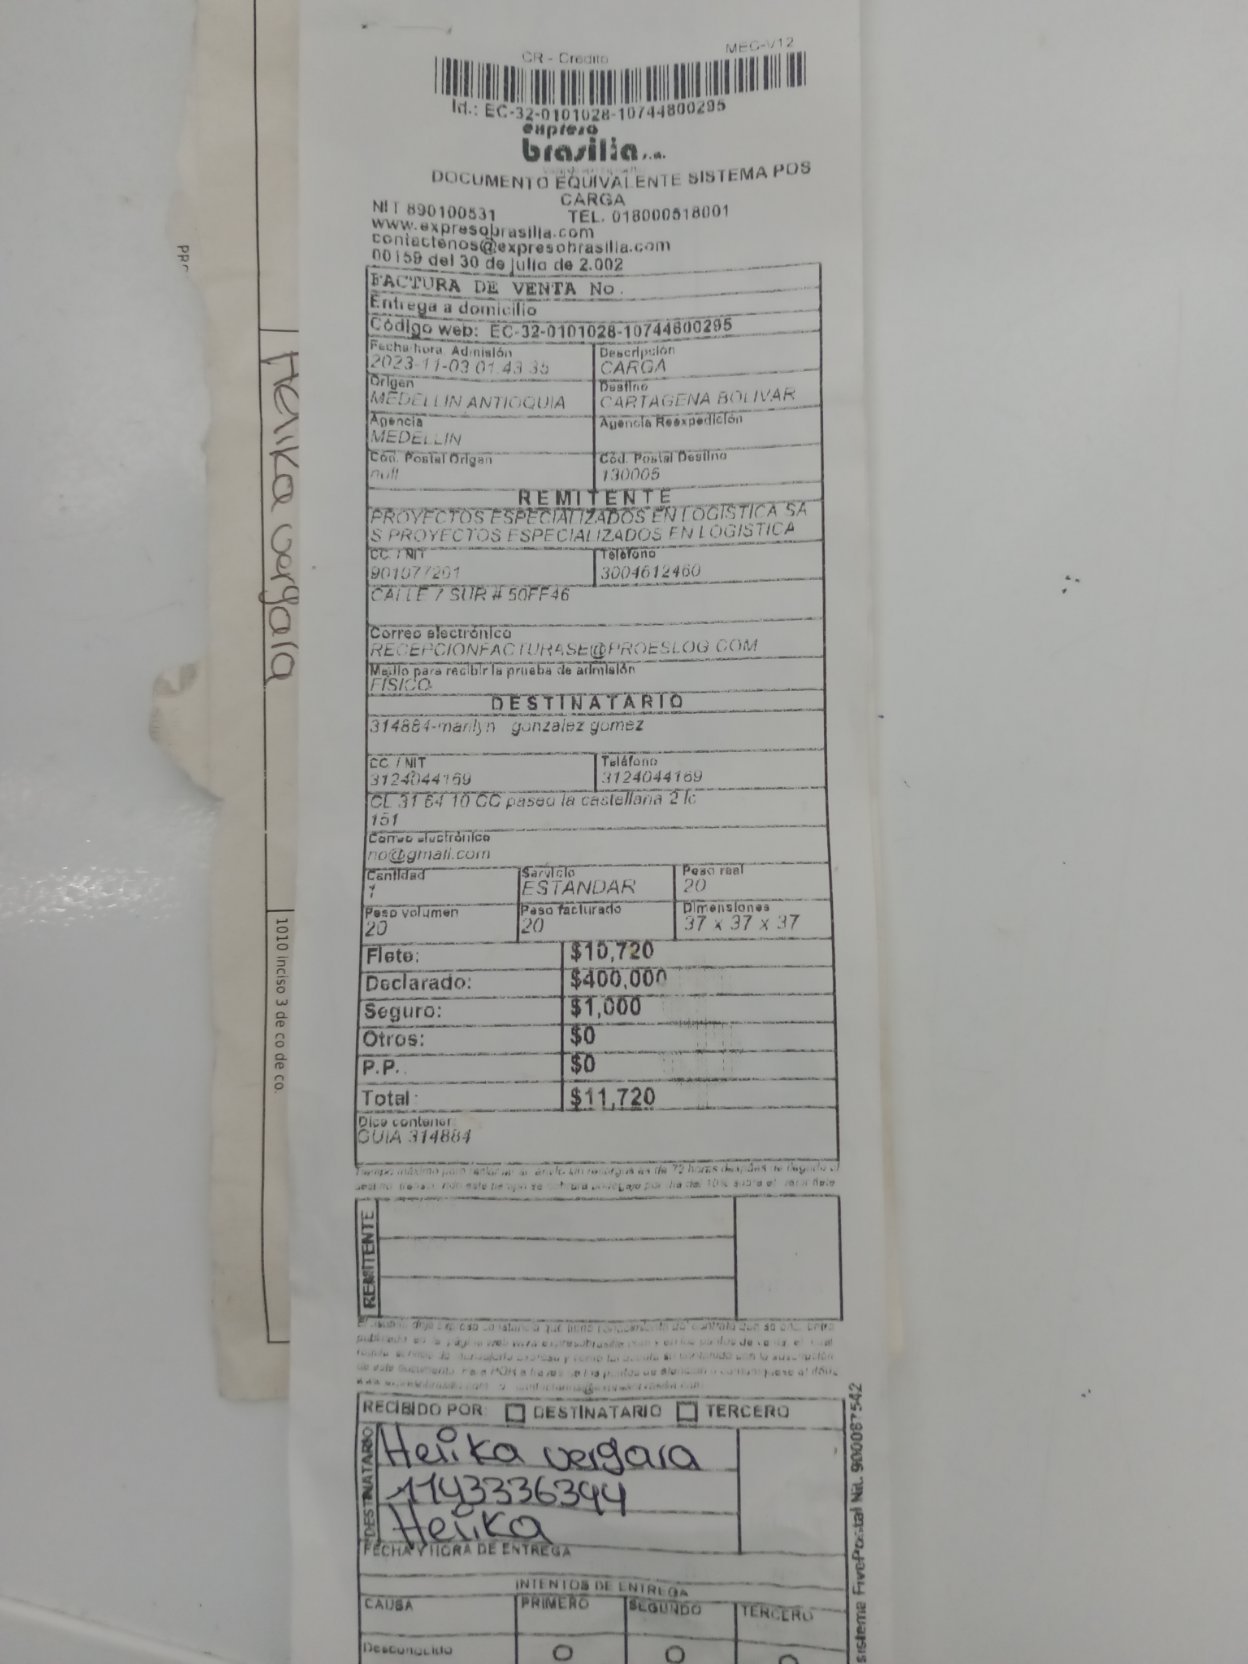 CR - Credito
MEC-V12
Id.: EC-32-0101028-10744800295
expreso
brasilia s.a.
DOCUMENTO EQUIVALENTE SISTEMA POS
CARGA
NIT 890100531 TEL. 018000518001
www.expresobrasilia.com
contactenos@expresobrasilia.com
00159 del 30 de julio de 2.002
FACTURA DE VENTA No.
Entrega a domicilio
Código web: EC-32-0101028-10744800295
Fecha hora Admisión Descripción
2023-11-03 01:43:35 CARGA
Origen Destino
MEDELLIN ANTIOQUIA CARTAGENA BOLIVAR
Agencia Agencia Reexpedición
MEDELLIN
Cód. Postal Origen Cód. Postal Destino
null 130005
REMITENTE
PROYECTOS ESPECIALIZADOS EN LOGISTICA SA
S PROYECTOS ESPECIALIZADOS EN LOGISTICA
CC / NIT Teléfono
901077201 3004612460
CALLE 7 SUR # 50FF46
Correo electrónico
RECEPCIONFACTURASE@PROESLOG.COM
Medio para recibir la prueba de admisión
FISICO
DESTINATARIO
314884-marilyn gonzalez gomez
CC / NIT Teléfono
3124044169 3124044169
CL 31 64 10 CC paseo la castellana 2 lc
151
Correo electrónico
no@gmail.com
Cantidad Servicio Peso real
1 ESTANDAR 20
Peso volumen Peso facturado Dimensiones
20 20 37 x 37 x 37
Flete: $10,720
Declarado: $400,000
Seguro: $1,000
Otros: $0
P.P. $0
Total: $11,720
Dice contener:
GUIA 314884
REMITENTE
RECIBIDO POR: DESTINATARIO TERCERO
DESTINATARIO
Heiika vergara
1143336394
Heiika
FECHA Y HORA DE ENTREGA
INTENTOS DE ENTREGA
CAUSA PRIMERO SEGUNDO TERCERO
Desconocido
sistema FivePostal Nit. 900087542
Heiika vergara
1010 inciso 3 de co de co.